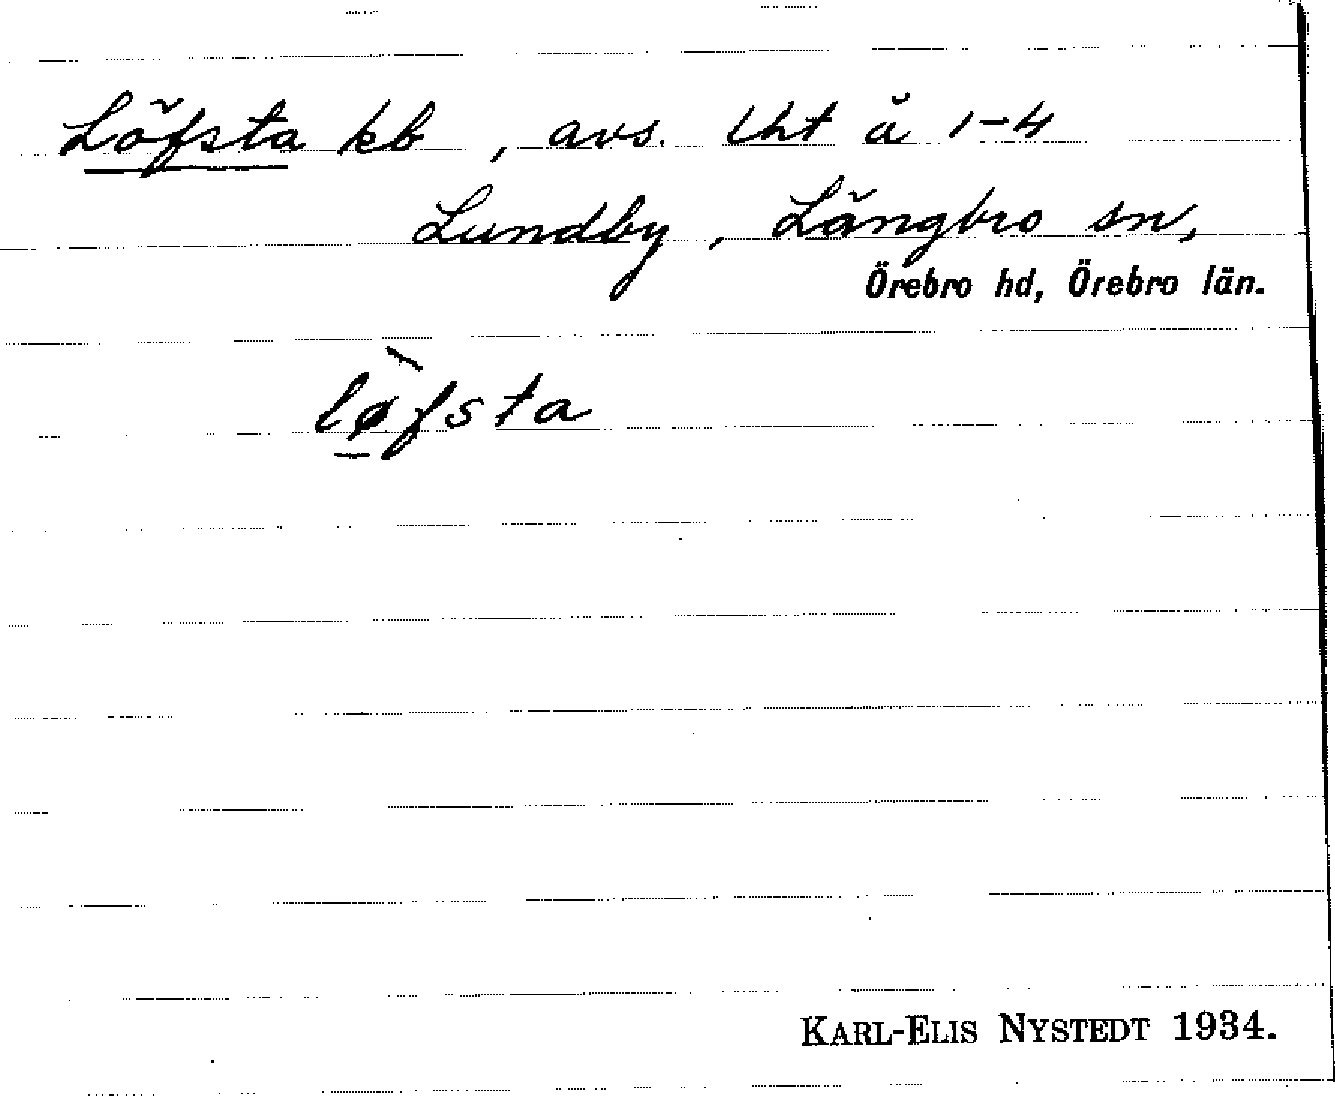 Löfsta kb, avs. lht å 1-4
Lundby, Längbro sn,
Örebro hd, Örebro län.
lø̀fsta
KARL-ELIS NYSTEDT 1934.